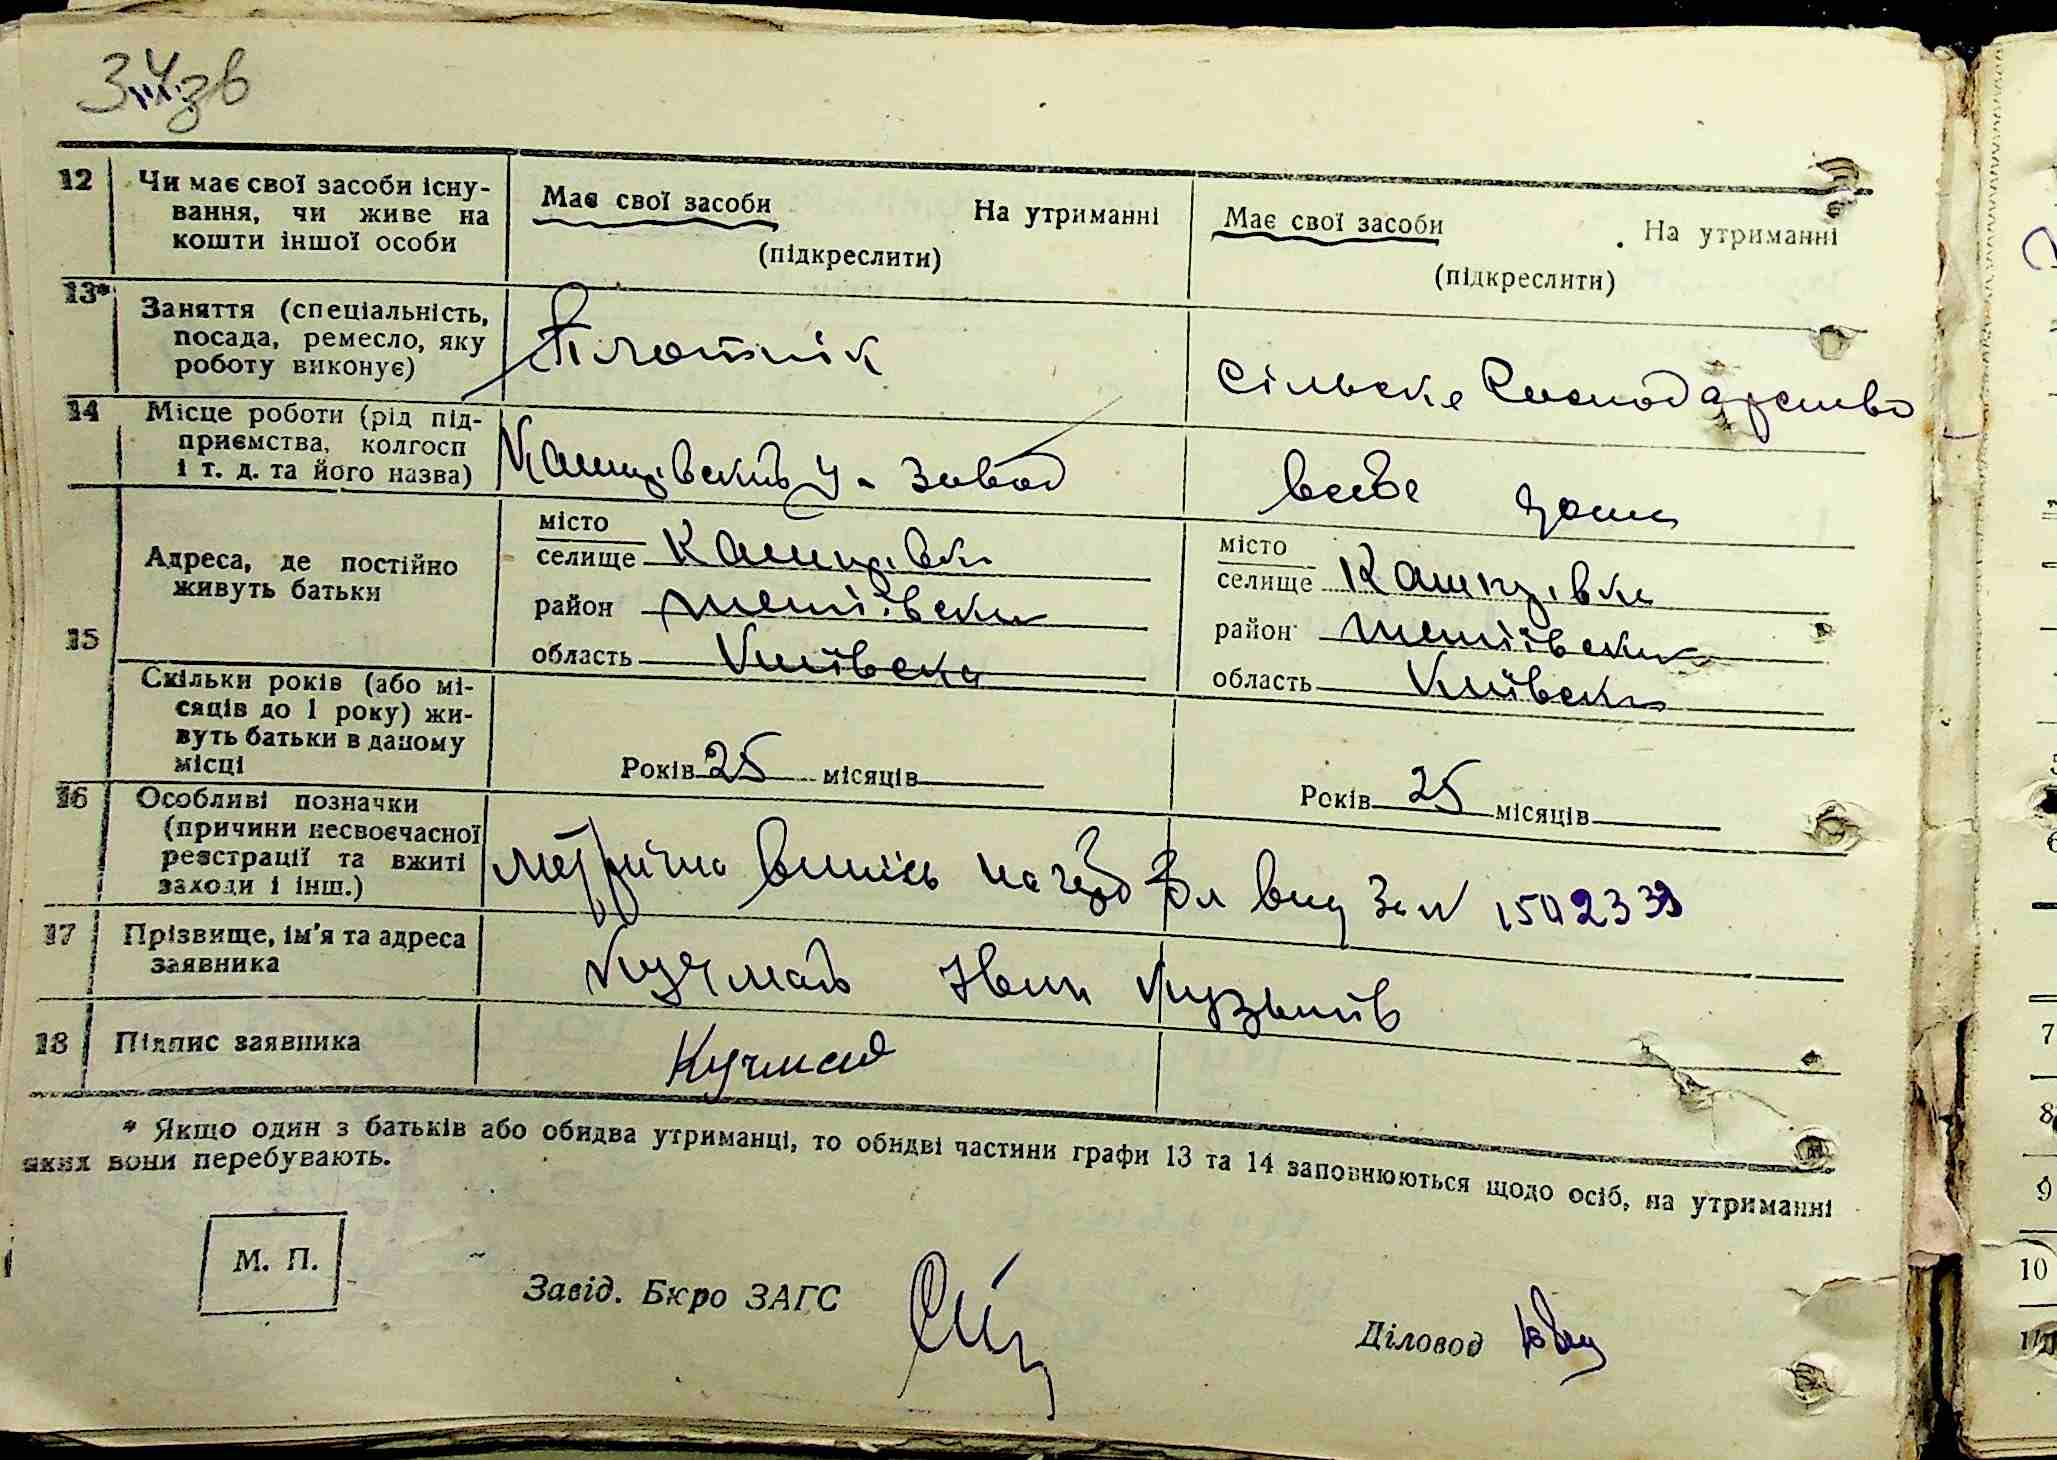 34зв
12 Чи має свої засоби існу-
вання, чи живе на
кошти іншої особи
Має свої засоби На утриманні
(підкреслити)
Має свої засоби На утриманні
(підкреслити)
13* Заняття (спеціальність,
посада, ремесло, яку
роботу виконує)
Плотнік
сільске господарство
14 Місце роботи (рід під-
приємства, колгосп
і т. д. та його назва)
завод
в себе дома
15 Адреса, де постійно
живуть батьки
місто
селище Кашперівка
район тетіївски
область Київска
місто
селище Кашперівка
район тетіївски
область Київска
Скільки років (або мі-
сяців до 1 року) жи-
вуть батьки в даному
місці
Років 25 місяців
Років 25 місяців
16 Особливі позначки
(причини несвоєчасної
реєстрації та вжиті
заходи і інш.)
метрична випись вид за № 1502339
17 Прізвище, ім'я та адреса
заявника
Кучмай Іван
18 Підпис заявника
Кучмай
* Якщо один з батьків або обидва утриманці, то обидві частини графи 13 та 14 заповнюються щодо осіб, на утриманні
яких вони перебувають.
М. П.
Завід. Бюро ЗАГС
Діловод
7
8
9
10
11